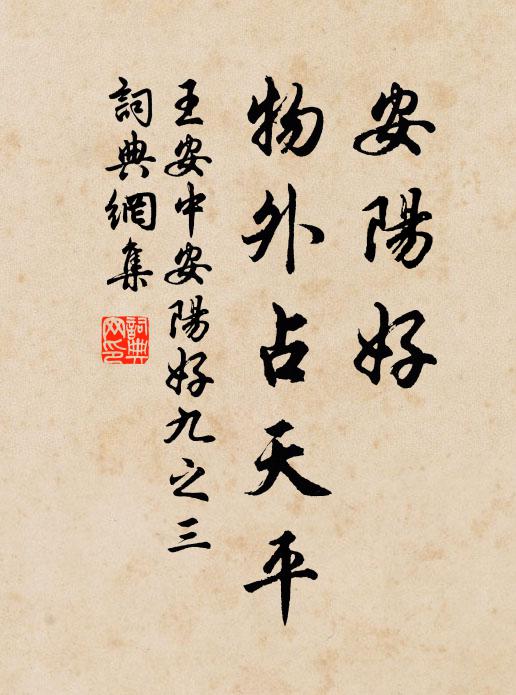 安陽好
物外占天平
王安中安陽好九之三
詞典網集
詞典網印